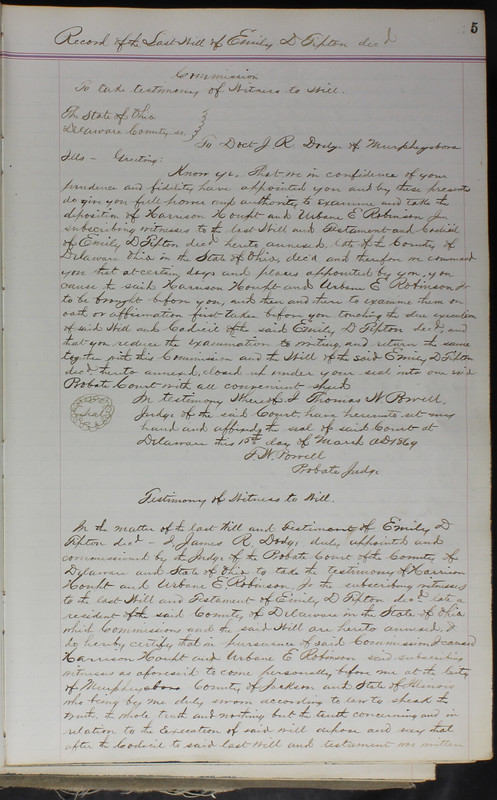 5
Record of the Last Will of Emily D Tipton decd
Commission
To take testimony of Witness to Will.
The State of Ohio
Delaware County ss,
To Doct J. R. Dodge of Murpheysboro
Ills - Greeting:
Know ye, That we in confidence of your
prudence and fidelity have appointed you and by these presents
do give you full power and authority to examine and take the
deposition of Harrison Houpt and Urbane E Robinson Jr
subscribing witnesses to the last Will and Testament and Codicil
of Emily D Tipton decd hereto annexed. late of the County of
Delaware Ohio in the State of Ohio, decd and therefore we command
you that at certain days and places appointed by you, you
cause the said Harrison Houpt and Urbane E Robinson Jr
to be brought before you, and then and there to examine them on
oath or affirmation first taken before you touching the due execution
of said Will and Codicil of the said Emily D Tipton decd, and
that you reduce the examination to writing, and return the same
together with this Commission and the Will of the said Emily D Tipton
decd hereto annexed, closed up under your seal into our said
Probate Court with all convenient speed
Seal
In testimony Whereof I Thomas W Powell,
Judge of the said Court have hereunto set my
hand and affixed the seal of said Court at
Delaware this 15th day of March AD 1869
T. W. Powell
Probate Judge
Testimony of Witness to Will.
In the matter of the last Will and Testimony of Emily D
Tipton decd - I, James R. Dodge duly appointed and
commissioned by the Judge of the Probate Court of the County of
Delaware and State of Ohio to take the testimony of Harrison
Houpt and Urbane E Robinson Jr the subscribing witnesses
to the last Will and Testament of Emily D Tipton decd late a
resident of the said County of Delaware in the State of Ohio
which Commissions and the said Will are hereto annexed. I
do hereby certify that in pursuance of said Commission I caused
Harrison Houpt and Urbane E Robinson said subscribing
witnesses as aforesaid to come personally before me at the
of Murpheysboro County of Jackson and State of Illinois
who being by me duly sworn according to law to speak the
truth, the whole truth and nothing but the truth concerning and in
relation to the execution of said will depose and say that
after the Codicil to said last Will and testament was written